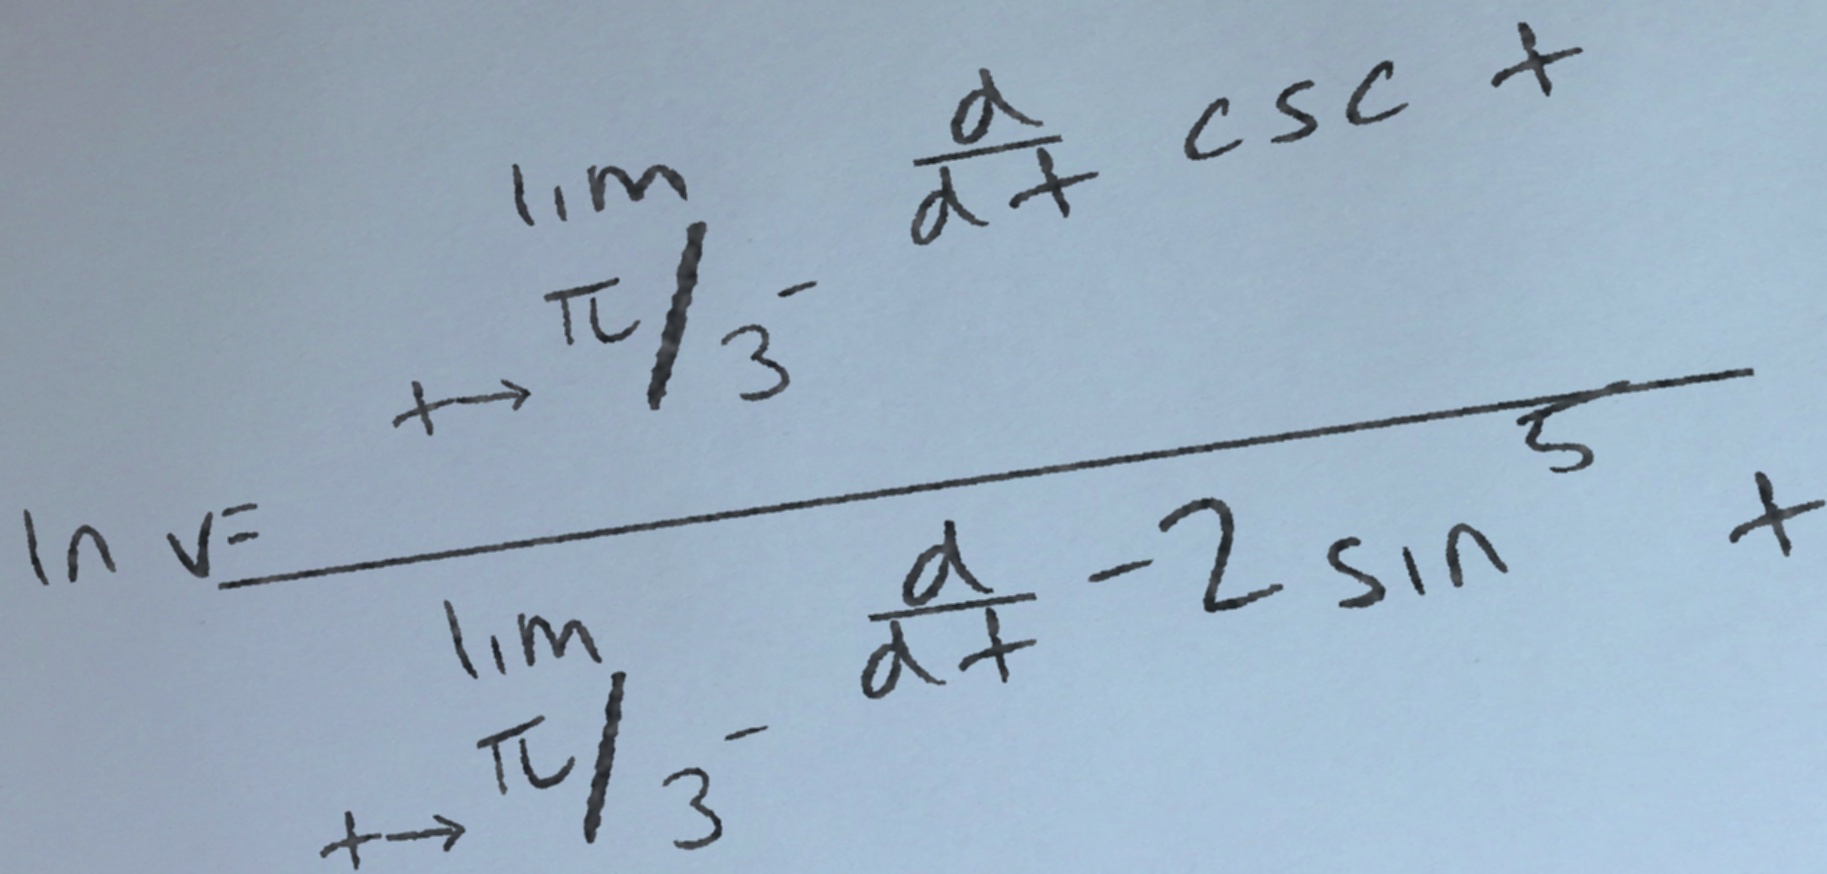 \ln v = \frac{\lim_{t \to \pi/3^-} \frac{d}{dt} \csc t}{\lim_{t \to \pi/3^-} \frac{d}{dt} -2 \sin^5 t}